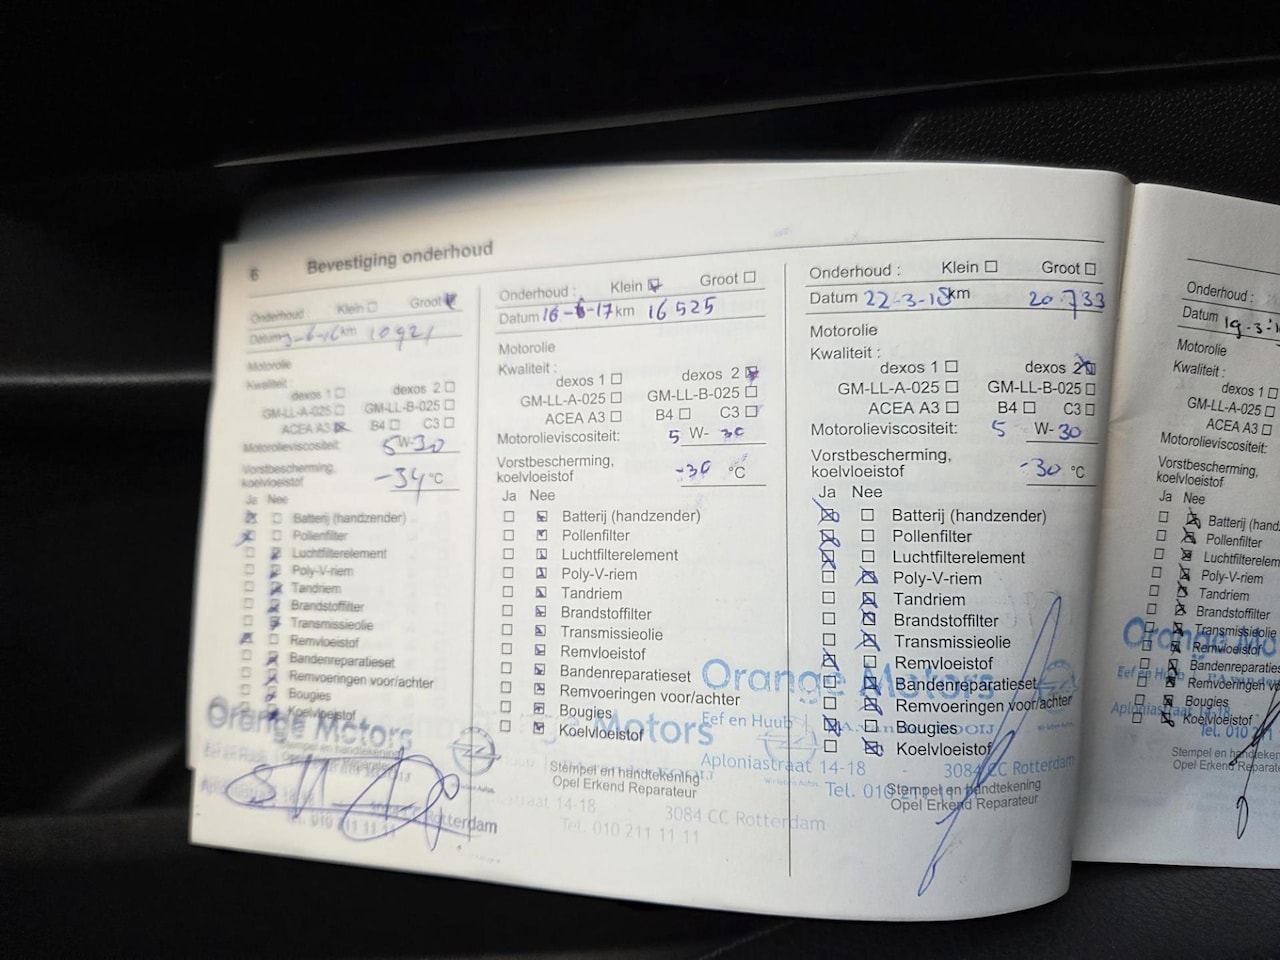 6 Bevestiging onderhoud
Onderhoud : Klein Groot
Datum km 10921
Motorolie
Kwaliteit :
dexos 1 dexos 2
GM-LL-A-025 GM-LL-B-025
ACEA A3 B4 C3
Motorolieviscositeit: 5 W-30
Vorstbescherming,
koelvloeistof -34 °C
Ja Nee
Batterij (handzender)
Pollenfilter
Luchtfilterelement
Poly-V-riem
Tandriem
Brandstoffilter
Transmissieolie
Remvloeistof
Bandenreparatieset
Remvoeringen voor/achter
Bougies
Koelvloeistof
Orange Motors
Stempel en handtekening
Rotterdam
Tel. 010 211 11 11
Onderhoud : Klein Groot
Datum 16-6-17 km 16525
Motorolie
Kwaliteit :
dexos 1 dexos 2
GM-LL-A-025 GM-LL-B-025
ACEA A3 B4 C3
Motorolieviscositeit: 5 W- 30
Vorstbescherming,
koelvloeistof -30 °C
Ja Nee
Batterij (handzender)
Pollenfilter
Luchtfilterelement
Poly-V-riem
Tandriem
Brandstoffilter
Transmissieolie
Remvloeistof
Bandenreparatieset
Remvoeringen voor/achter
Bougies
Koelvloeistof
Motors
Stempel en handtekening
Opel Erkend Reparateur
straat 14-18 3084 CC Rotterdam
Tel. 010 211 11 11
Onderhoud : Klein Groot
Datum 22-3-18 km 20.733
Motorolie
Kwaliteit :
dexos 1 dexos 2
GM-LL-A-025 GM-LL-B-025
ACEA A3 B4 C3
Motorolieviscositeit: 5 W- 30
Vorstbescherming,
koelvloeistof -30 °C
Ja Nee
Batterij (handzender)
Pollenfilter
Luchtfilterelement
Poly-V-riem
Tandriem
Brandstoffilter
Transmissieolie
Remvloeistof
Bandenreparatieset
Remvoeringen voor/achter
Bougies
Koelvloeistof
Orange Motors
Eef en Huub
Aploniastraat 14-18 - 3084 CC Rotterdam
Tel. 010
Stempel en handtekening
Opel Erkend Reparateur
Onderhoud :
Datum 19-3-
Motorolie
Kwaliteit :
dexos 1
GM-LL-A-025
ACEA A3
Motorolieviscositeit:
Vorstbescherming,
koelvloeistof
Ja Nee
Batterij (hand
Pollenfilter
Luchtfilterelem
Poly-V-riem
Tandriem
Brandstoffilter
Transmissieolie
Remvloeistof
Bandenreparatie
Remvoeringen v
Bougies
Koelvloeistof
Orange Mo
Eef en Huub
Aploniastraat 14-18
Tel. 010
Stempel en handteke
Opel Erkend Repara